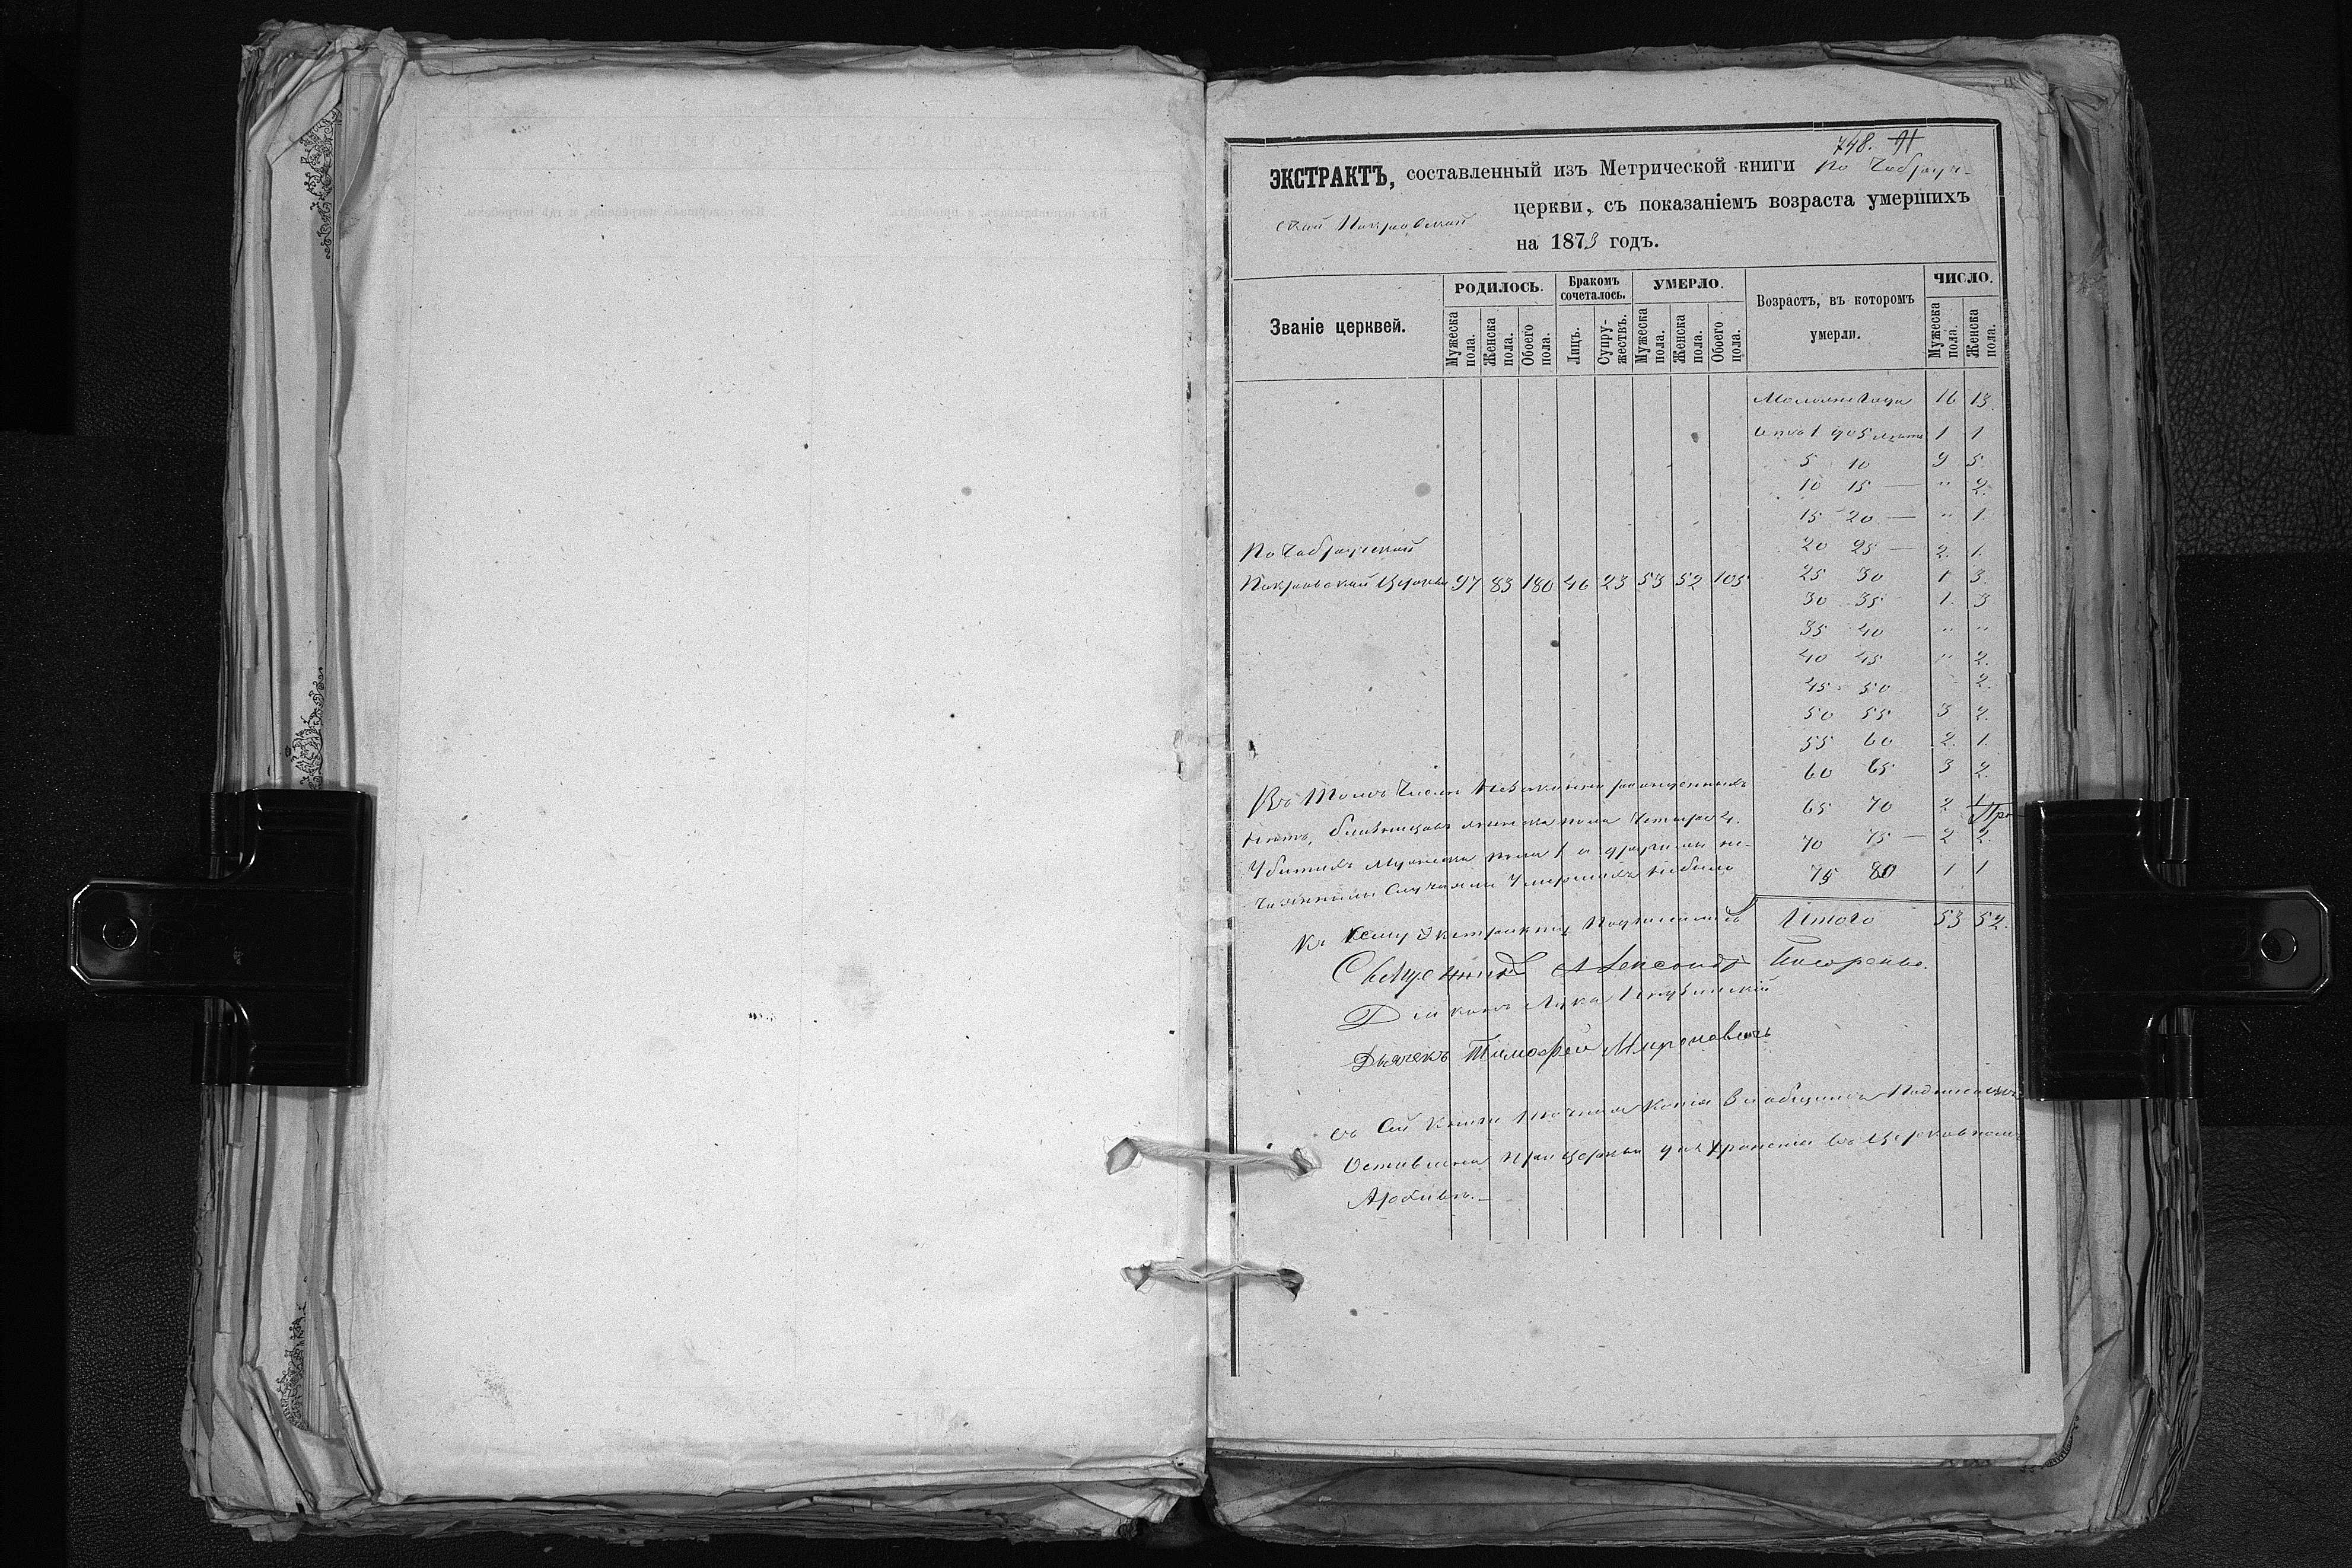 748.
ЭКСТРАКТЪ, составленный изъ Метрической книги по
ской Покровской церкви, съ показаніемъ возраста умершихъ
на 1873 годъ.
Званіе церквей.
РОДИЛОСЬ.
Мужеска пола.
Женска пола.
Обоего пола.
Бракомъ сочеталось.
Лицъ.
Супружествъ.
УМЕРЛО.
Мужеска пола.
Женска пола.
Обоего пола.
Возрастъ, въ которомъ умерли.
ЧИСЛО.
Мужеска пола.
Женска пола.
16 13.
Отъ 1 до 5 лѣтъ 1 1
5 10 9 5.
10 15 — " 2.
15 20 — " 1.
20 25 — 2. 1.
25 30 1 3.
30 35 1. 3
35 40 " "
40 45 " 2.
45 50 2.
50 55 3 2.
55 60 2. 1.
60 65 3 2.
65 70 2
70 75 — 2 2.
75 80 1 1
Итого 53 52.
По
Покровской Церкви 97 83 180 46 23 53 52 105
Въ томъ числѣ незаконно рожденныхъ
нѣтъ, близнецовъ женска пола четыре 4.
Убитыхъ мужеска пола 1 и другими не-
чаянными случаями умершихъ небыло
Къ сему Экстракту подписались
Священникъ Александръ
Діаконъ Лука
Дьячекъ Тимофей Мироновичь
Съ сей книги точная копія за общимъ подписомъ
оставлена при церкви для храненія въ Церковномъ
Архивѣ.—